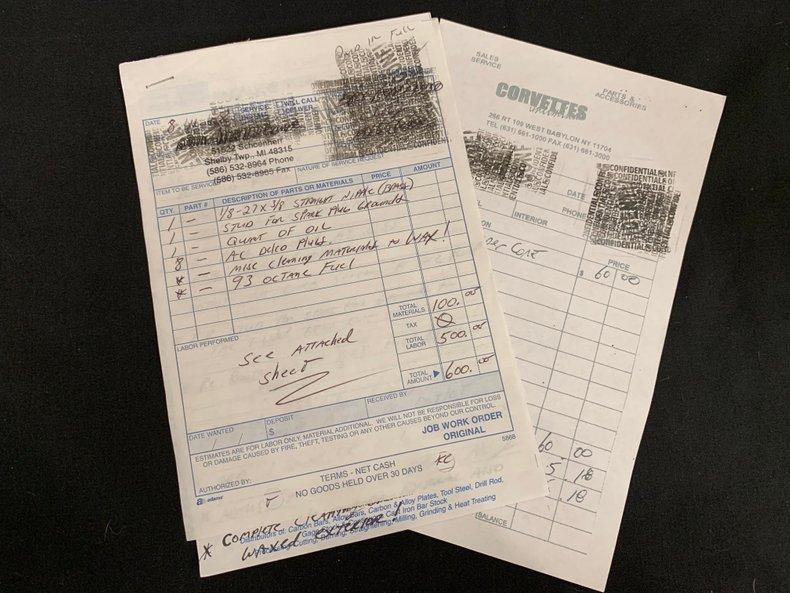 Paid in Full
DATE
SERVICE
WILL CALL
DELIVER
51522 Schoenherr
Shelby Twp., MI 48315
(586) 532-8964 Phone
(586) 532-8965 Fax
NATURE OF SERVICE REQUEST
ITEM TO BE SERVICED
QTY. PART # DESCRIPTION OF PARTS OR MATERIALS PRICE AMOUNT
1 - 1/8-27 x 3/8 STRAIGHT NIPPLE (BRASS)
1 - STUD FOR SPARK PLUG GROUNDS
1 - QUART OF OIL
8 - AC DELCO PLUGS.
* - MISC CLEANING MATERIALS WAX!
* - 93 OCTANE FUEL
TOTAL MATERIALS 100.00
TAX
TOTAL LABOR 500.00
TOTAL AMOUNT 600.00
LABOR PERFORMED
SEE ATTACHED
SHEET
DATE WANTED
DEPOSIT
$
RECEIVED BY
ESTIMATES ARE FOR LABOR ONLY, MATERIAL ADDITIONAL. WE WILL NOT BE RESPONSIBLE FOR LOSS
OR DAMAGE CAUSED BY FIRE, THEFT, TESTING OR ANY OTHER CAUSES BEYOND OUR CONTROL.
JOB WORK ORDER
ORIGINAL
AUTHORIZED BY:
TERMS - NET CASH
NO GOODS HELD OVER 30 DAYS
5868
adams
* COMPLETE
WAXED EXTERIOR!
Distributors of: Carbon Bars, Alloy Bars, Carbon & Alloy Plates, Tool Steel, Drill Rod,
Cast Iron Bar Stock
Cutting, Burning, Straightening, Milling, Grinding & Heat Treating
SALES
SERVICE
CORVETTES
PARTS &
ACCESSORIES
266 RT 109 WEST BABYLON NY 11704
TEL (631) 661-1000 FAX (631) 661-3000
CONFIDENTIAL
DATE
PHONE
INTERIOR
PRICE
$ 60 00
60 00
5 18
.18
BALANCE